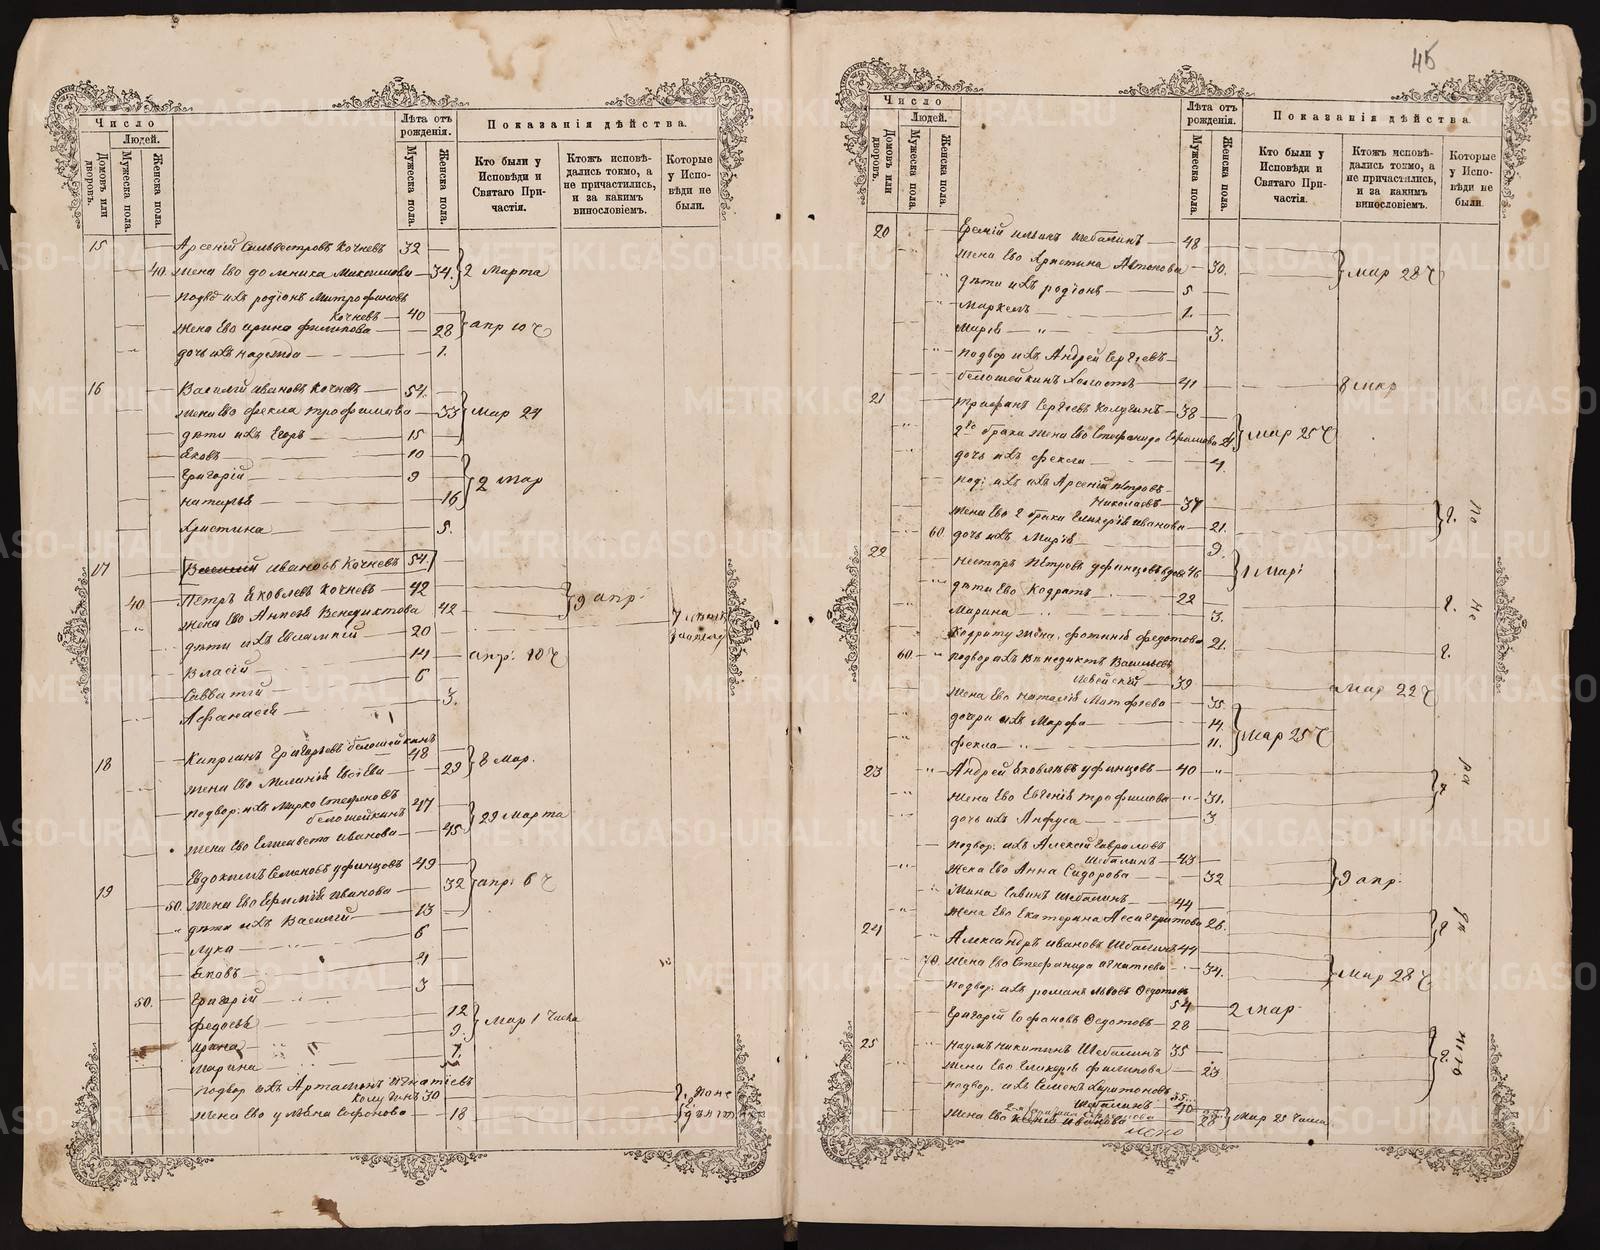 Число
Людей.
Домовъ или дворовъ.
Мужеска пола.
Женска пола.
Лѣта отъ рожденія.
Мужеска пола.
Женска пола.
Показанія дѣйства.
Кто были у Исповѣди и Святаго Причастія.
Ктожъ исповѣдались токмо, а не причастились, и за какимъ винословіемъ.
Которые у Исповѣди не были.
15 Арсеній Сильвестровъ Кочневъ 32
40. жена Ево домника Максимова 34. 2 марта
подвор ихъ родіонъ Митрофановъ
Кочневъ 40
жена Ево ирина филипова 28 апр 10 Ч
дочь ихъ надежда 1.
16 Василій ивановъ Кочневъ 54.
жена Ево фекла трофимова 33 мар 24
дѣти ихъ Егоръ 15
Яковъ 10
Григорій 9 2 мар
наталья 16
христина 5.
17 Василій ивановъ Кочневъ 54.
40 Петръ Яковлевъ Кочневъ 42 9 апр.
жена Ево Анисья Венедиктова 42
дѣти ихъ Евлампій 20
Власій 14 апр. 10 Ч
Савватій 6
Афанасія 3.
18 Кипріанъ Григорьевъ белошейкинъ 48
жена Ево Меланія 29 8 мар.
подвор. ихъ Марко Стефановъ
белошейкинъ 47 29 марта
жена Ево Елисавета иванова 45
19 Евдокимъ Семеновъ уфинцовъ 49
50. жена Ево Ефимія иванова 32 апр. 6 Ч
дѣти ихъ Василій 13
Лука 6
Яковъ 4
50. Григорій 3
федосья 12 мар 1 Часа
ирина 9.
марина 7.
подвор ихъ Артамонъ игнатіевъ
Калугинъ 30
жена Ево ульяна сафонова 18
45
Число
Людей.
Домовъ или дворовъ.
Мужеска пола.
Женска пола.
Лѣта отъ рожденія.
Мужеска пола.
Женска пола.
Показанія дѣйства
Кто были у Исповѣди и Святаго Причастія.
Ктожъ исповѣдались токмо, а не причастились, и за какимъ винословіемъ.
Которые у Исповѣди не были
20 ильинъ шебалинъ 48
жена Ево христина Антонова 30. мар 28 Ч
дѣти ихъ родіонъ 5
Маркелъ 1.
Марія 3.
подвор ихъ Андрей Сергѣевъ
белошейкинъ холостъ 41 8 мар
21 трифанъ Сергѣевъ Калугинъ 38
2го брака жена Ево Стефанида мар 25 Ч
дочь ихъ фекла 4.
под: ихъ Арсеній петровъ
Николаевъ 37
жена Ево 2 брака Гликерія иванова 21.
60. дочь ихъ Марія 9.
22 нестеръ петровъ уфинцовъ вдовъ 46 1 мар:
дѣти Ево Кодратъ 22
Марина 3.
Кодрату жена фотинія федотова 21.
60. подвор ихъ Венедиктъ Васильевъ
39 мар 22 Ч
жена Ево наталія Матфѣева 35
дочри ихъ Марфа 14. мар 25 Ч
фекла 11.
23 Андрей Яковлевъ уфинцовъ 40
жена Ево Евгенія трофимова 31.
дочь ихъ Анфуса 3
подвор. ихъ Алексій Гавриловъ
шебалинъ 43
жена Ево Анна Сидорова 32 9 апр.
Мина Савинъ шебалинъ 44
жена Ево Екатерина 26.
24 Александръ ивановъ Шебалинъ 44
70. жена Ево Стефанида игнатіева 34. мар 28 Ч
подвор: ихъ романъ львовъ Федотовъ
54 2 мар
Григорій Сафановъ Федотовъ 28
25 наумъ никитинъ Шебалинъ 35
жена Ево Гликерія филипова 23
подвор. ихъ Семенъ харитоновъ
шебалинъ 40
жена Ево иванова 28 мар 25 Часа
METRIKI.GASO-URAL.RU